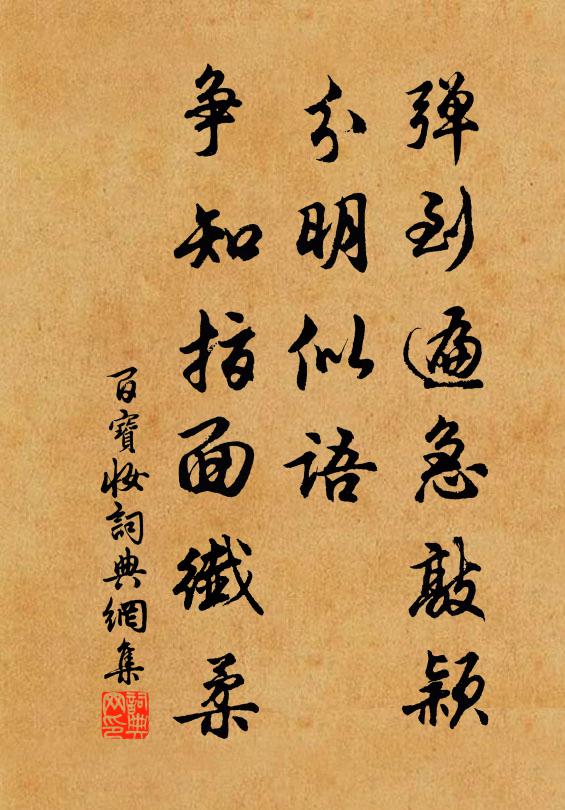 弹到遍急敲颖
分明似语
争知指面纖柔
百寶妆詞典網集
詞典网印